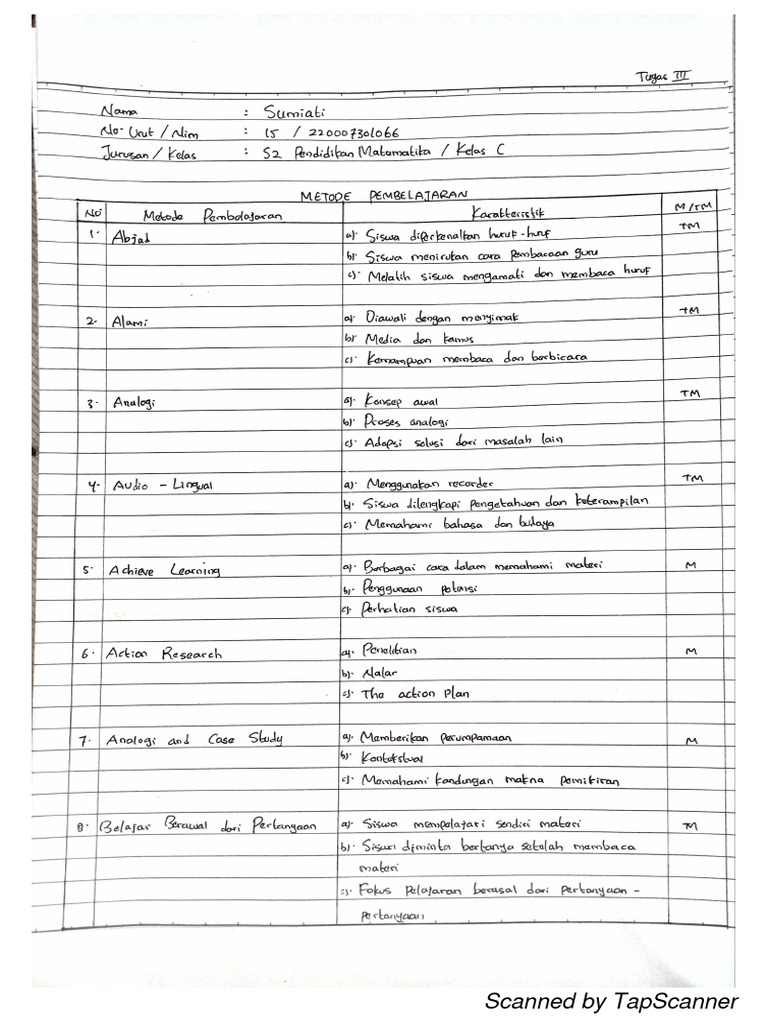 Tugas III
Nama : Sumiati
No. Urut / Nim : 15 / 220007301066
Jurusan / Kelas : S2 Pendidikan Matematika / Kelas C
METODE PEMBELAJARAN
NO Metode Pembelajaran Karakteristik M/TM
1. Abjad a). Siswa diperkenalkan huruf-huruf TM
b). Siswa menirukan cara pembacaan guru
c). Melatih siswa mengamati dan membaca huruf
2. Alami a). Diawali dengan menyimak TM
b). Media dan kamus
c). Kemampuan membaca dan berbicara
3. Analogi a). Konsep awal TM
b). Proses analogi
c). Adopsi solusi dari masalah lain
4. Audio - Lingual a). Menggunakan recorder TM
b). Siswa dilengkapi pengetahuan dan keterampilan
c). Memahami bahasa dan budaya
5. Achieve Learning a). Berbagai cara dalam memahami materi M
b). Penggunaan potensi
c). Perhatian siswa
6. Action Research a). Penelitian M
b). Nalar
c). The action Plan
7. Analogi and Case Study a). Memberikan perumpamaan M
b). Kontekstual
c). Memahami kandungan makna pemikiran
8. Belajar Berawal dari Pertanyaan a). Siswa mempelajari sendiri materi TM
b). Siswa diminta bertanya setelah membaca
materi
c). Fokus Pelajaran berasal dari pertanyaan -
pertanyaan
Scanned by TapScanner